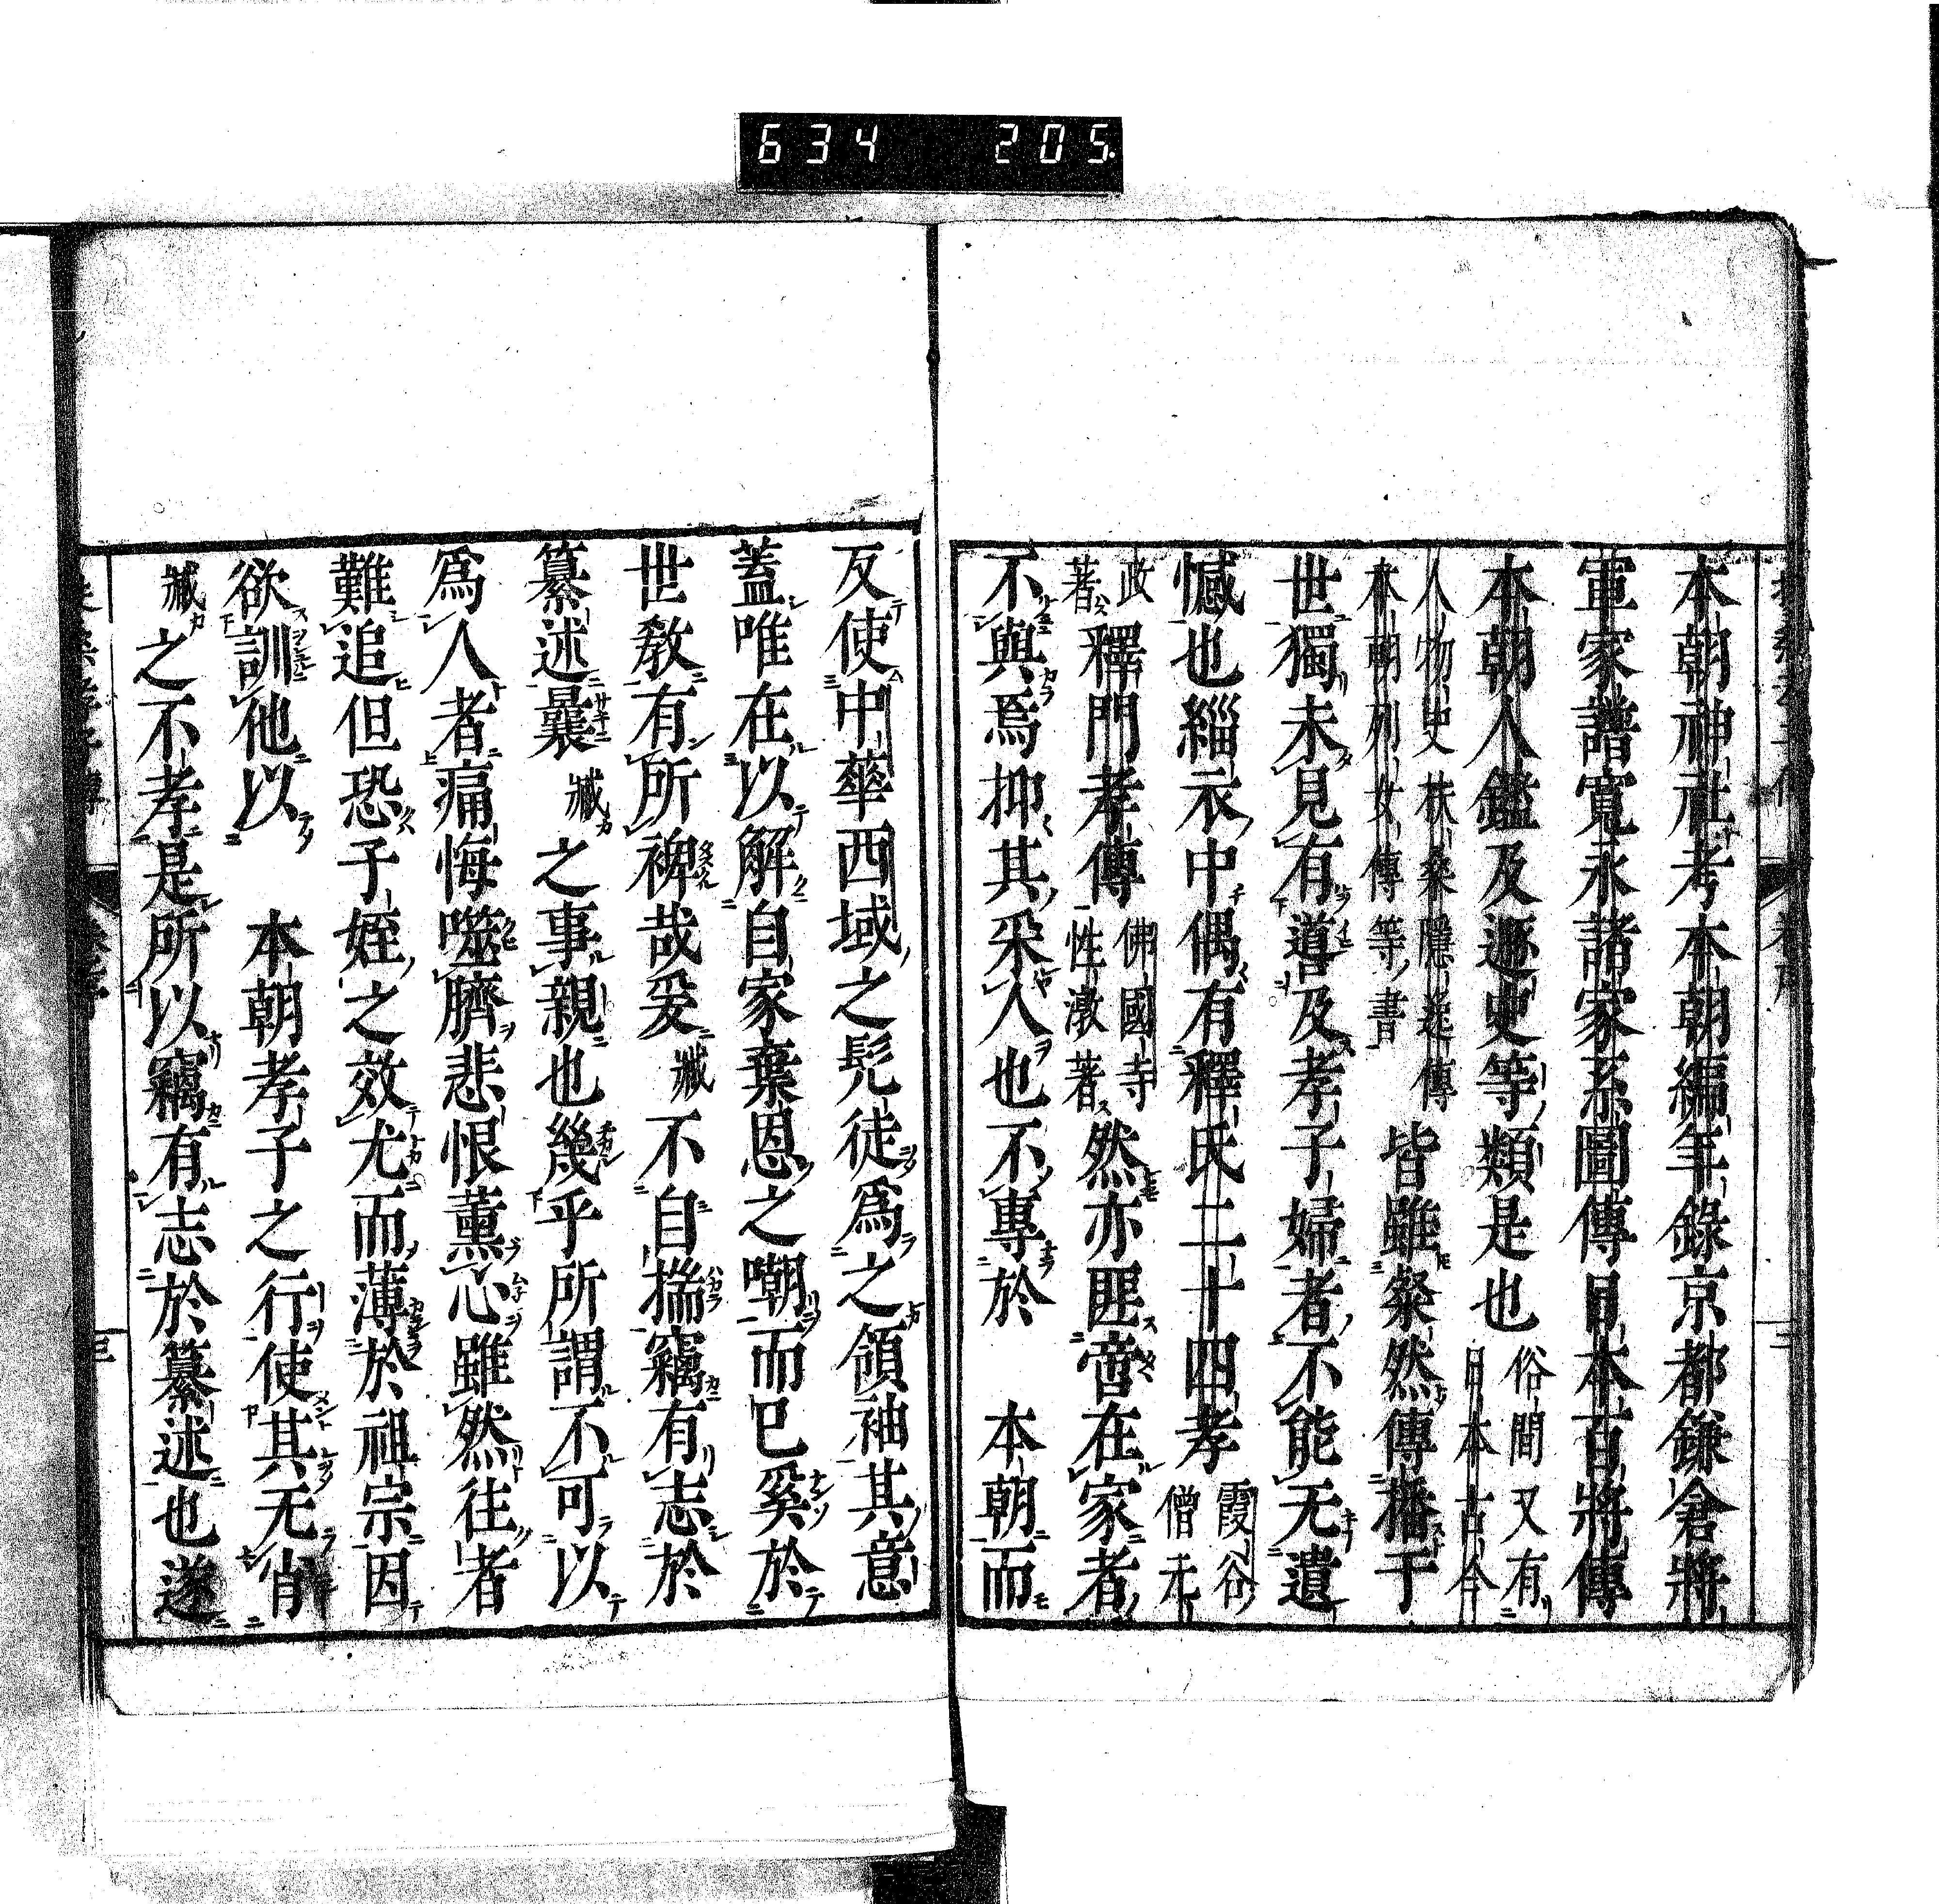 634 205
本朝神社考本朝編年錄京都鎌倉將
軍家譜寛永諸家系圖傳日本百將傳
本朝人鑑及遯史等類是也俗間又有日本古今
人物史扶桑隱逸傳本朝列女傳等書皆雖粲然傳播于
世獨未見有導及孝子婦者不能无遺
憾也緇衣中偶有釋氏二十四孝霞谷僧元
政著釋門孝傳佛國寺性潡著然亦匪啻在家者
不與焉抑其釆人也不專於 本朝而
反使中華西域之髠徒爲之領袖其意
蓋唯在以解自家棄恩之嘲而已奚於
世教有所裨哉爰臧不自揣竊有志於
纂述曩臧之事親也幾乎所謂不可以
爲人者痛悔噬臍悲恨薰心雖然往者
難追但恐子姪之效尤而薄於祖宗因
欲訓他以 本朝孝子之行使其无肖
臧之不孝是所以竊有志於纂述也遂
三